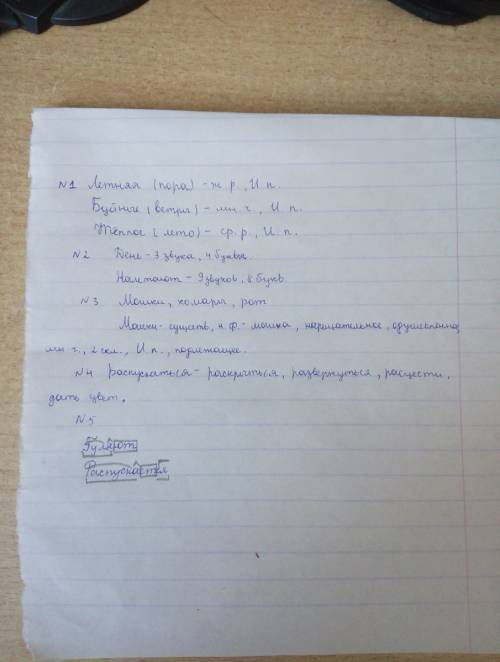 №1 Летняя (пора) - ж.р., И.п.
Буйные (ветры) - мн.ч., И.п.
Тёплое (лето) - ср.р., И.п.
№2 День - 3 звука, 4 буквы
- 9 звуков, 8 букв
№3 Мошки, комары, рот
Мошки - существ, н.ф. - мошка, нарицательное, одушевлённо,
мн.ч., 2 скл., И.п., подлежащее.
№4 Распускаться - раскрыться, развернуться, расцвести,
дать цвет.
№5
Гуляют
Распускается